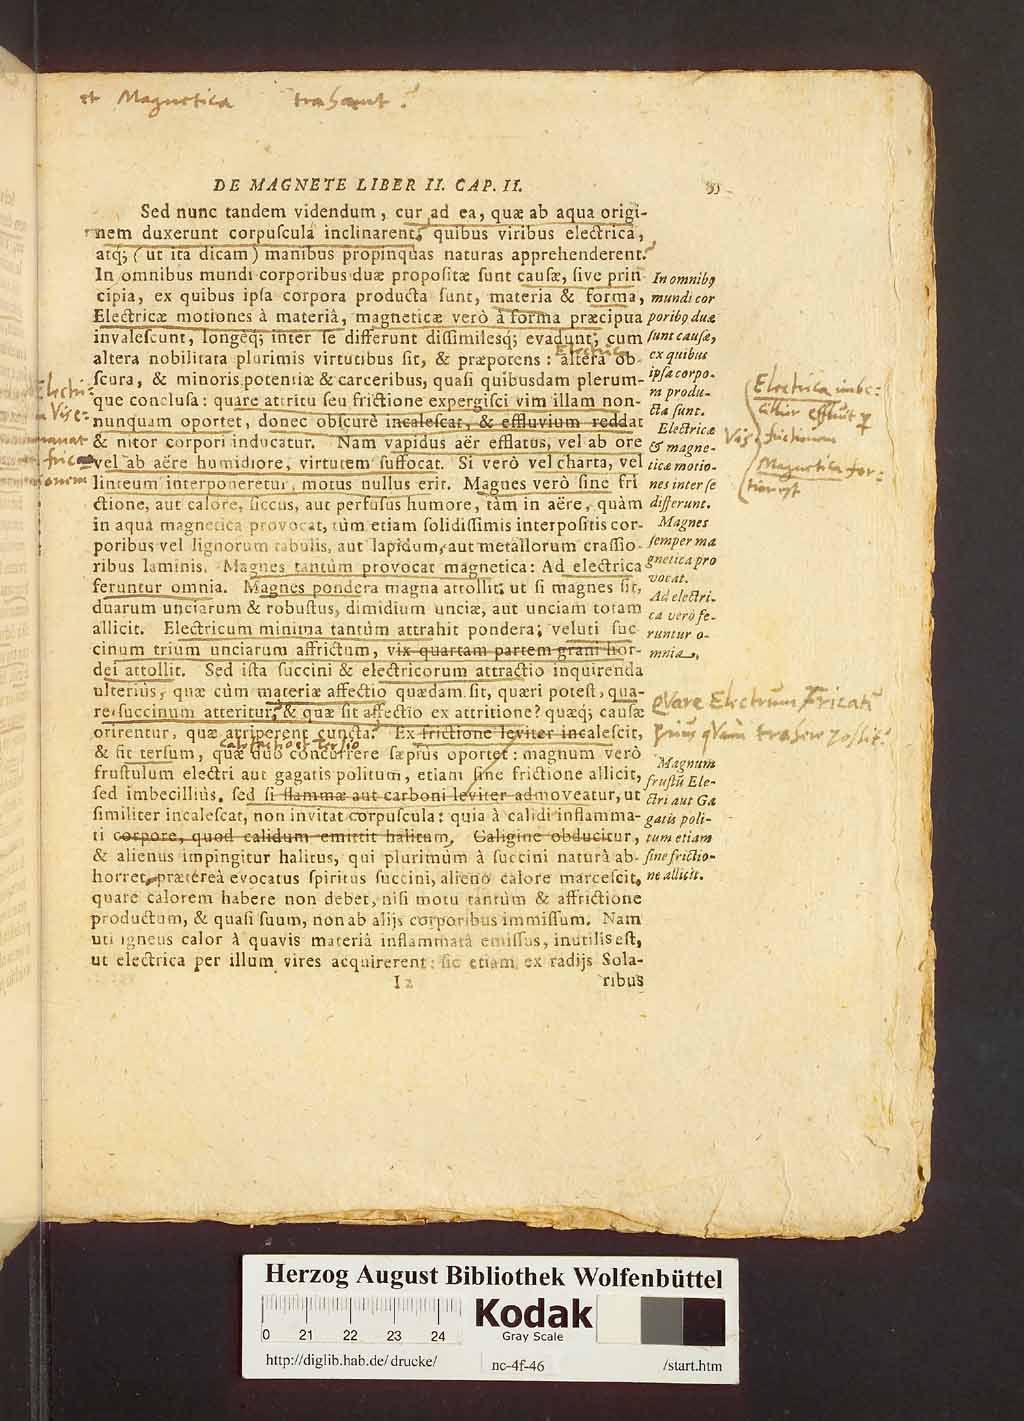 et Magnetica trahant?
DE MAGNETE LIBER II. CAP. II.
Sed nunc tandem videndum, cur ad ea, quæ ab aqua origi-
nem duxerunt corpuſcula inclinarent, quibus viribus electrica,
atq; (ut ita dicam) manibus propinquas naturas apprehenderent.
In omnibus mundi corporibus duæ propoſitæ ſunt cauſæ, ſive prin
cipia, ex quibus ipſa corpora producta ſunt, materia & forma,
Electricæ motiones à materiâ, magneticæ verò à forma præcipua
invaleſcunt, longeq; inter ſe differunt diſſimilesq; evadunt; cum
altera nobilitata plurimis virtutibus ſit, & præpotens: altera ob-
ſcura, & minoris potentiæ & carceribus, quaſi quibusdam plerum-
que concluſa: quare attritu ſeu frictione expergiſci vim illam non-
nunquam oportet, donec obſcurè incaleſcat, & effluvium reddat
& nitor corpori inducatur. Nam vapidus aër efflatus, vel ab ore
vel ab aëre humidiore, virtutem ſuffocat. Si verò vel charta, vel
linteum interponeretur, motus nullus erit. Magnes verò ſine fri
ctione, aut calore, ſiccus, aut perfuſus humore, tàm in aëre, quàm
in aqua magnetica provocat, tùm etiam ſolidiſſimis interpoſitis cor-
poribus vel lignorum tabulis, aut lapidum, aut metallorum craſſio-
ribus laminis. Magnes tantùm provocat magnetica: Ad electrica
feruntur omnia. Magnes pondera magna attollit: ut ſi magnes ſit,
duarum unciarum & robuſtus, dimidium unciæ, aut unciam totam
allicit. Electricum minima tantùm attrahit pondera; veluti ſuc-
cinum trium unciarum affrictum, vix quartam partem grani hor-
dei attollit. Sed iſta ſuccini & electricorum attractio inquirenda
ulterius, quæ cùm materiæ affectio quædam ſit, quæri poteſt, qua-
re ſuccinum atteritur, & quæ ſit affectio ex attritione? quæq; cauſæ
orirentur, quæ arriperent cuncta? Ex frictione leviter incaleſcit,
& fit terſum, quæ duo concurrere ſæpius oportet: magnum verò
fruſtulum electri aut gagatis politum, etiam ſine frictione allicit,
ſed imbecillius, ſed ſi flammæ aut carboni leviter admoveatur, ut
ſimiliter incaleſcat, non invitat corpuſcula: quia à calidi inflamma-
ti corpore, quod calidum emittit halitum, Caligine obducitur,
& alienus impingitur halitus, qui plurimùm à ſuccini naturâ ab-
horret, prætereà evocatus ſpiritus ſuccini, alieno calore marceſcit,
quare calorem habere non debet, niſi motu tantùm & affrictione
productum, & quaſi ſuum, non ab alijs corporibus immiſſum. Nam
uti igneus calor à quavis materiâ inflammatâ emiſſus, inutilis eſt,
ut electrica per illum vires acquirerent: ſic etiam ex radijs Sola-
I 2
ribus
In omnibꝰ
mundi cor
poribꝰ duæ
ſunt cauſæ,
ex quibus
ipſa corpo-
ra produ-
cta ſunt.
Electricæ
& magne-
ticæ motio-
nes inter ſe
differunt.
Magnes
ſemper ma
gnetica pro
vocat.
Ad electri-
ca verò fe-
runtur o-
mnia.
Quare Electrum Fricati
prius quàm trahere possit?
Magnum
fruſtũ Ele-
ctri aut Ga
gatis poli-
tum etiam
ſine frictio-
ne allicit.
Electrica
Herzog August Bibliothek Wolfenbüttel
Kodak
Gray Scale
0 21 22 23 24
http://diglib.hab.de/drucke/
nc-4f-46
/start.htm